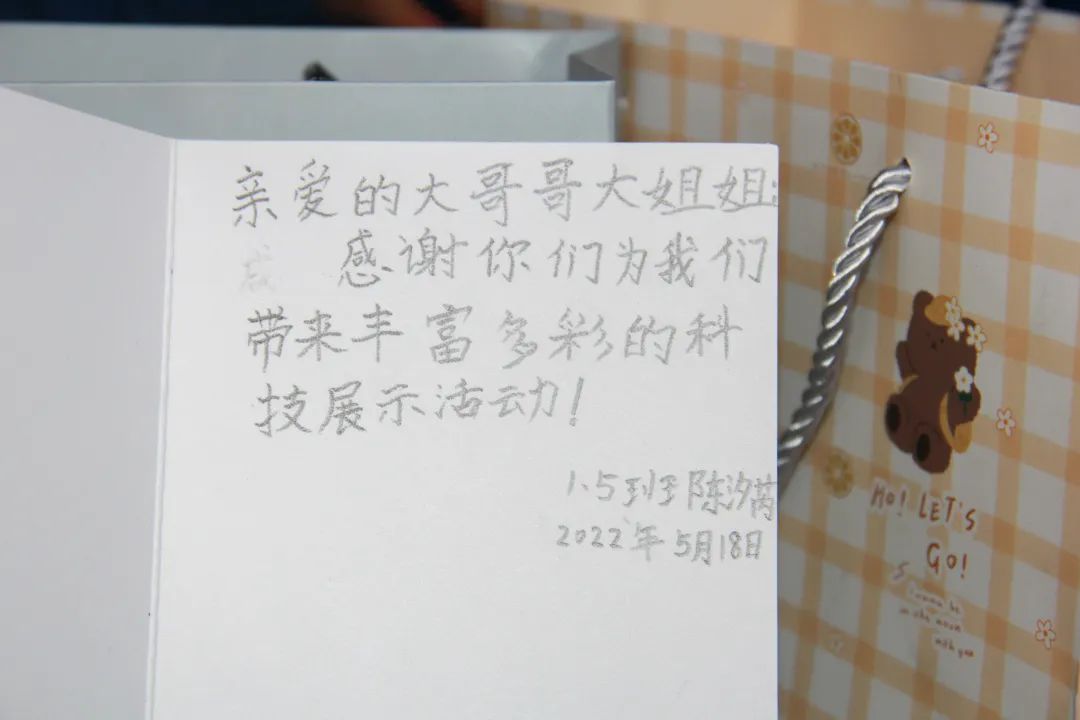 亲爱的大哥哥大姐姐:
感谢你们为我们
带来丰富多彩的科
技展示活动!
1.5班 陈汐芮
2022年5月18日
HO! LET'S
GO!
I wanna be
in the moon
with you